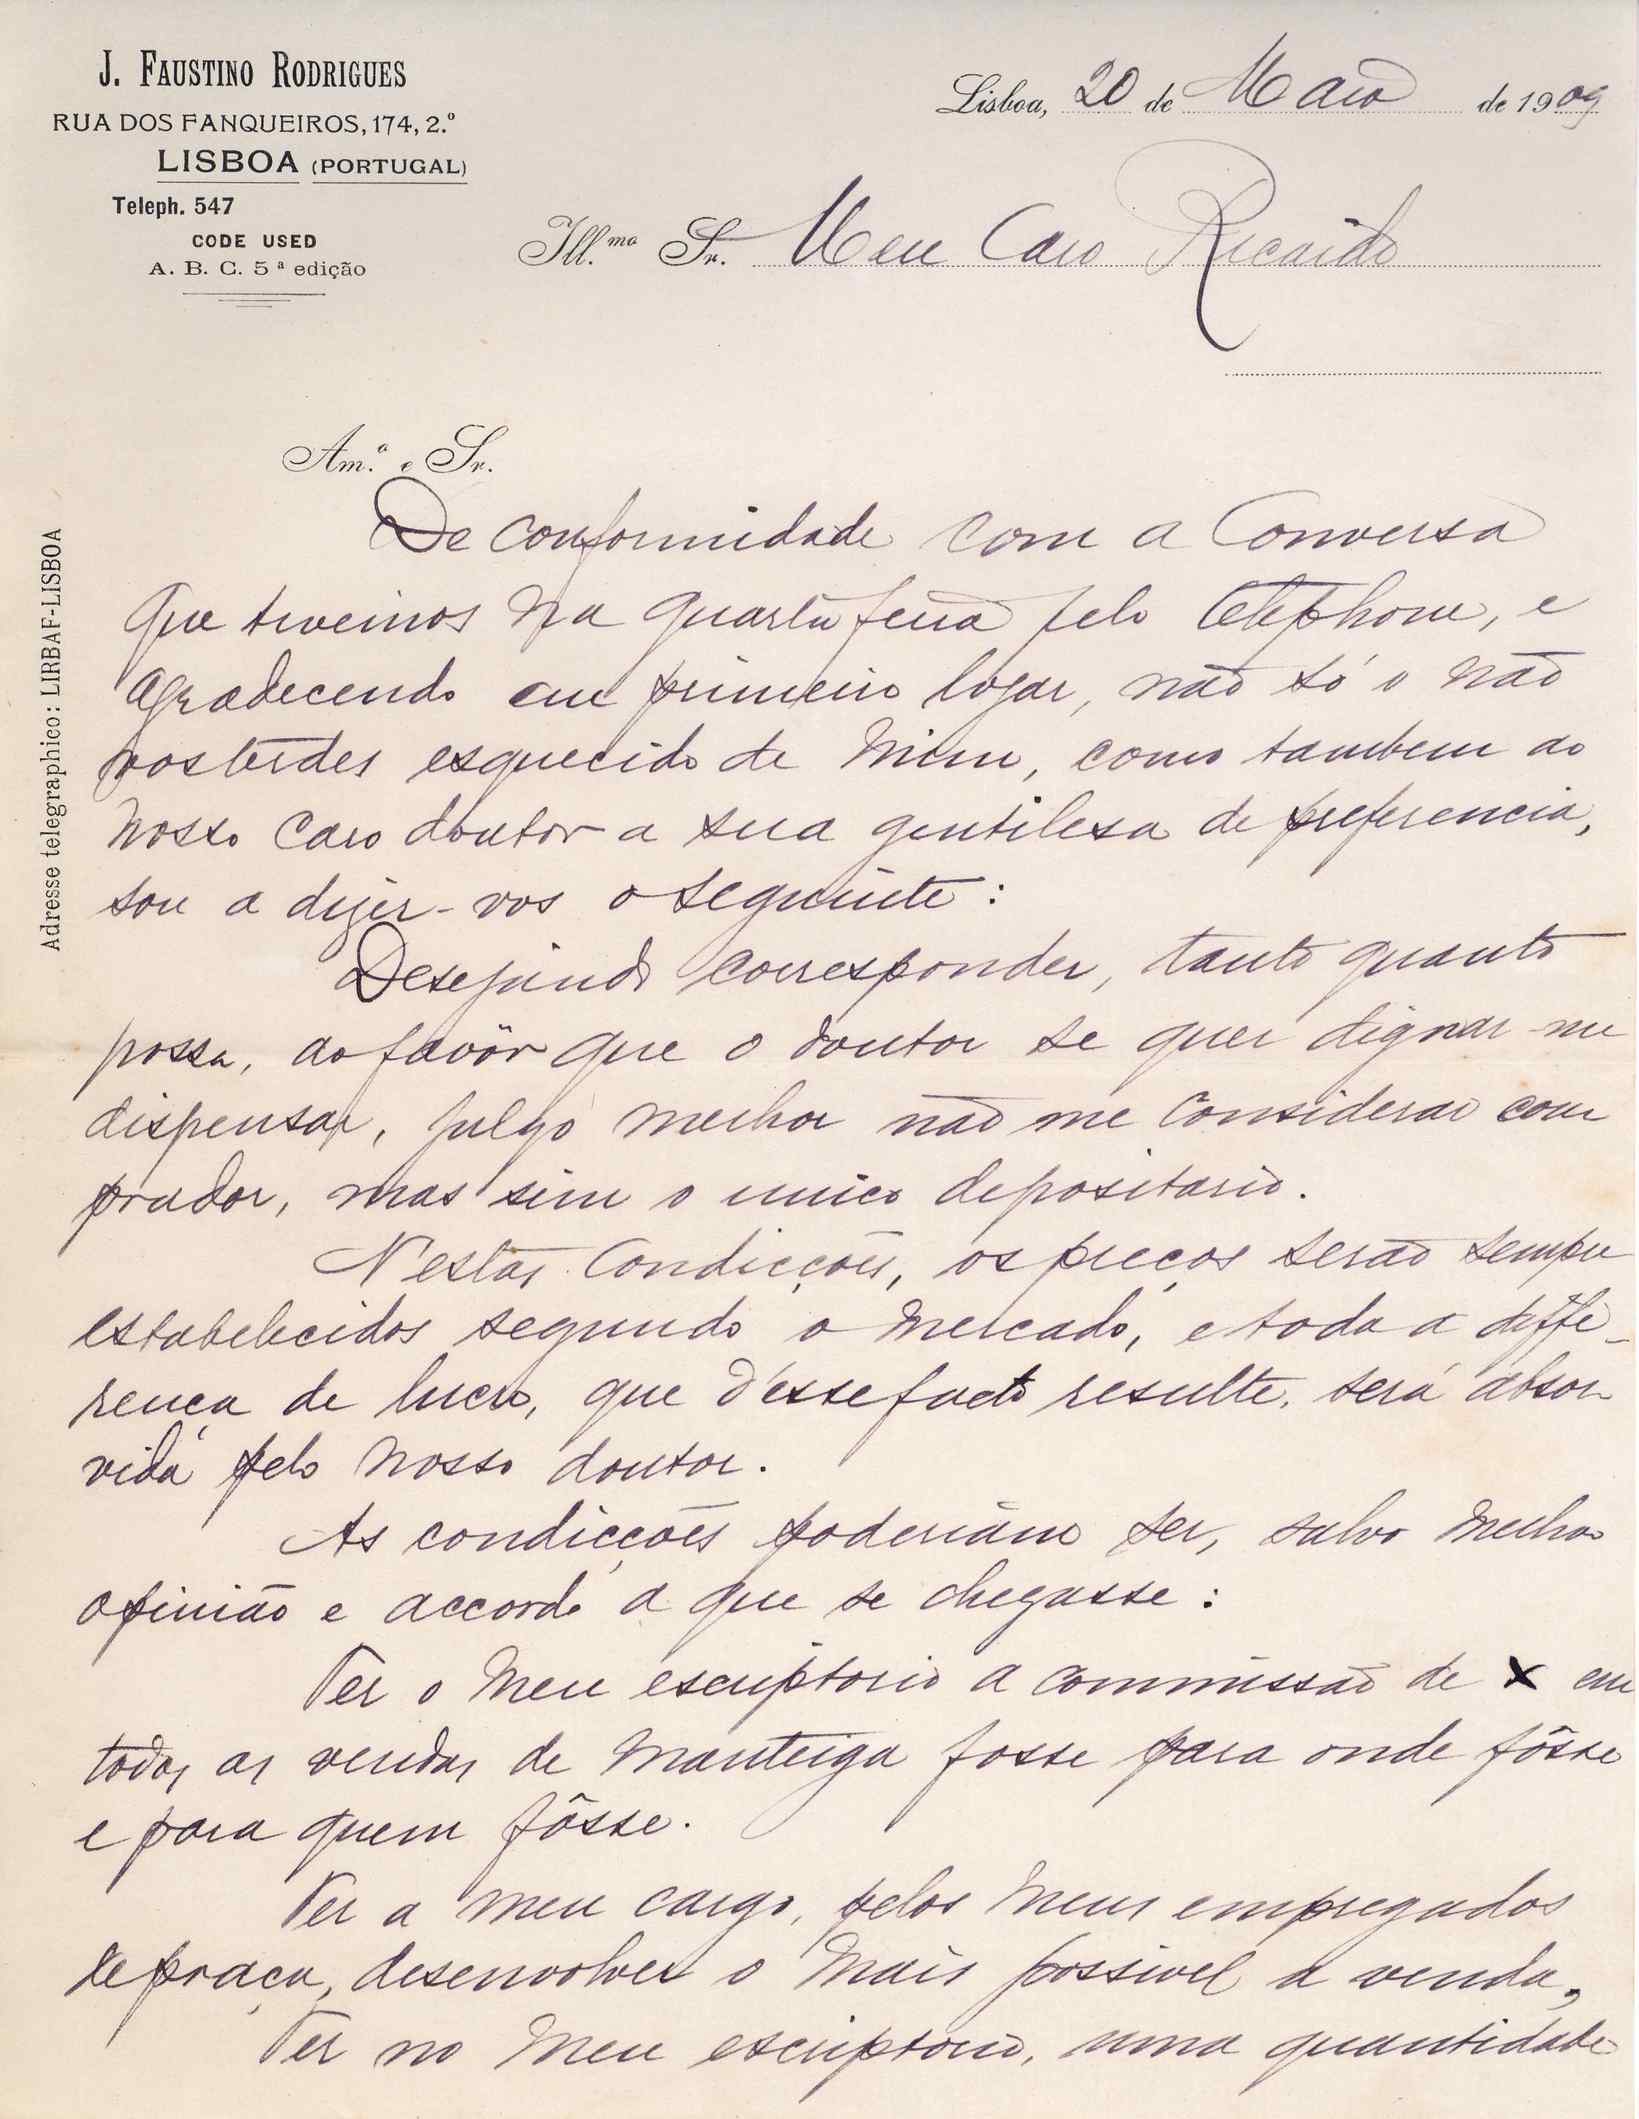 J. FAUSTINO RODRIGUES
RUA DOS FANQUEIROS, 174, 2.º
LISBOA (PORTUGAL)
Teleph. 547
CODE USED
A. B. C. 5ª edição
Adresse telegraphico: LIRBAF-LISBOA
Lisboa, 20 de Maio de 1909
Ill.mo Sr. Meu Caro Ricardo
Am.º e Sr.
De conformidade com a conversa
que tivemos na quarta feira pelo telephone, e
agradecendo em primeiro logar, não só o não
vos terdes esquecido de mim, como tambem ao
nosso caro doutor a sua gentilesa de preferencia,
sou a dizer-vos o seguinte:
Desejando corresponder, tanto quanto
possa, ao favôr que o doutor se quer dignar-me
dispensar, julgo melhor não me considerar com
prador, mas sim o unico depositario.
N'estas condicções, os preços serão sempre
estabelecidos segundo o mercado, e toda a diffe-
rença de lucro, que d'esse facto resulte, será absor-
vida pelo nosso doutor.
As condicções poderiam ser, salvo melhor
opinião e accordo a que se chegasse:
Ter o meu escriptorio a commissão de X em
todas as vendas de manteiga fosse para onde fôsse
e para quem fôsse.
Ter a meu cargo, pelos meus empregados
de praça, desenvolver o mais possivel a venda,
Ter no meu escriptorio, uma quantidade